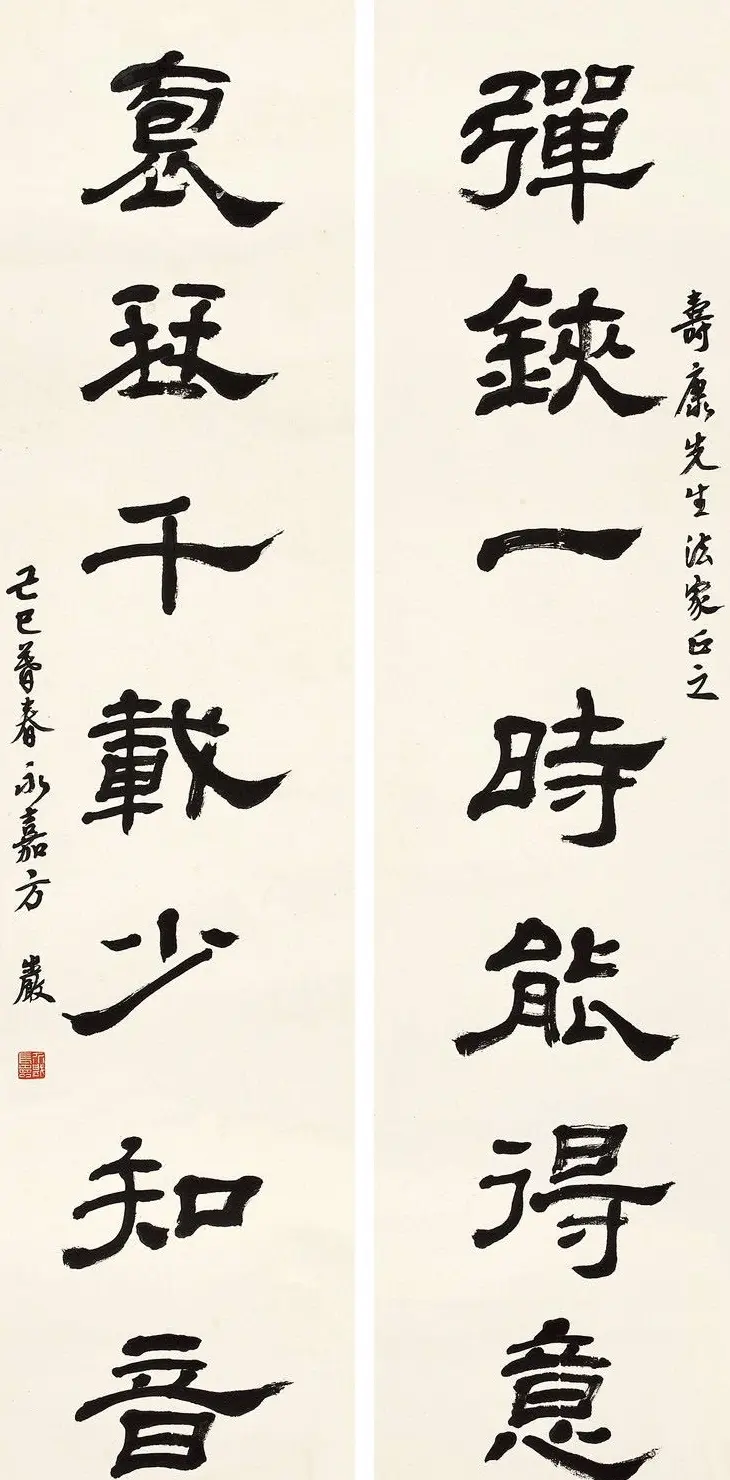 壽康先生法家正之
彈鋏一時能得意
袌珡千載少知音
己巳暮春永嘉方巖